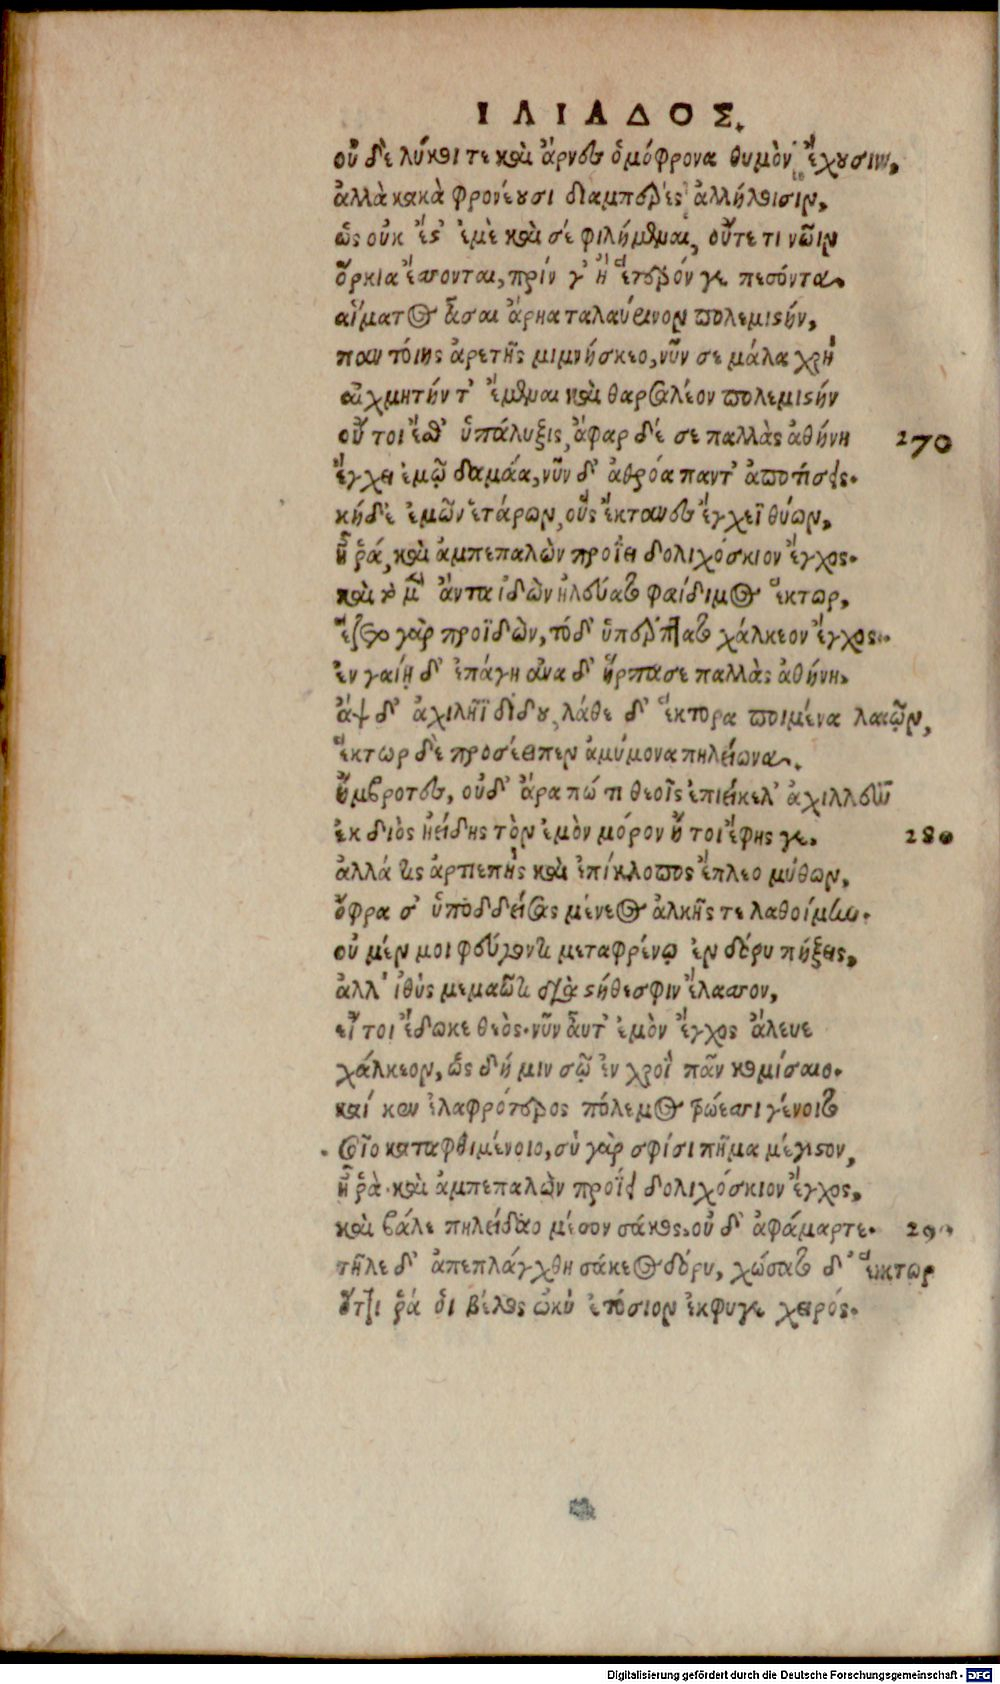 ΙΛΙΑΔΟΣ.
οὐδὲ λύκοι τε καὶ ἄρνες ὁμόφρονα θυμὸν ἔχουσιν,
ἀλλὰ κακὰ φρονέουσι διαμπερὲς ἀλλήλοισιν,
ὣς οὐκ ἔστ' ἐμὲ καὶ σέ φιλήμεναι, οὔτε τι νῶιν
ὅρκια ἔσσονται, πρίν γ' ἢ ἕτερόν γε πεσόντα.
αἵματος ἆσαι ἄρηα ταλαύρινον πολεμιστήν,
παντοίης ἀρετῆς μιμνήσκεο, νῦν σε μάλα χρὴ
αἰχμητήν τ' ἔμεναι καὶ θαρσαλέον πολεμιστήν
οὔ τοι ἔθ' ὑπάλυξις, ἄφαρ δέ σε παλλὰς ἀθήνη 270
ἔγχει ἐμῷ δαμάα, νῦν δ' ἀθρόα παντ' ἀποτίσεις.
κήδε' ἐμῶν ἑτάρων, οὓς ἔκτανες ἔγχεϊ θύων,
ἦ ῥά, καὶ ἀμπεπαλὼν προΐει δολιχόσκιον ἔγχος.
καὶ τὸ μὲν ἄντα ἰδὼν ἠλεύατο φαίδιμος ἕκτωρ,
ἕζετο γὰρ προϊδὼν, τόδ' ὑπέρπτατο χάλκεον ἔγχος.
ἐν γαίῃ δ' ἐπάγη ἀνα δ' ἥρπασε παλλὰς ἀθήνη.
ἂψ δ' ἀχιλῆϊ δίδου, λάθε δ' ἕκτορα ποιμένα λαῶν,
ἕκτωρ δὲ προσέειπεν ἀμύμονα πηλείωνα.
ἤμβροτες, οὐδ' ἄρα πώ τι θεοῖς ἐπιείκελ' ἀχιλλεῦ
ἐκ διὸς ἠείδης τὸν ἐμὸν μόρον ἤ τοι ἔφης γε. 280
ἀλλά τις ἀρτιεπὴς καὶ ἐπίκλοπος ἔπλεο μύθων,
ὄφρα σ' ὑποδδείσας μένεος ἀλκῆς τε λαθοίμην.
οὐ μέν μοι φεύγοντι μεταφρένῳ ἐν δόρυ πήξεις,
ἀλλ' ἰθὺς μεμαῶτι διὰ στήθεσφιν ἔλασσον,
εἴ τοι ἔδωκε θεὸς. νῦν αὖτ' ἐμὸν ἔγχος ἄλευε
χάλκεον, ὡς δή μιν σῷ ἐν χροῒ πᾶν κομίσαιο.
καί κεν ἐλαφρότερος πόλεμος τρώεσσι γένοιτο
σεῖο καταφθιμένοιο, σὺ γὰρ σφίσι πῆμα μέγιστον,
ἦ ῥὰ. καὶ ἀμπεπαλὼν προΐει δολιχόσκιον ἔγχος,
καὶ βάλε πηλείδαο μέσον σάκος. οὐδ' ἀφάμαρτε. 290
τῆλε δ' ἀπεπλάγχθη σάκεος δόρυ, χώσατο δ' ἕκτωρ
ὅττι ῥά οἱ βέλος ὠκὺ ἐτόσιον ἔκφυγε χειρός.
Digitalisierung gefördert durch die Deutsche Forschungsgemeinschaft - DFG